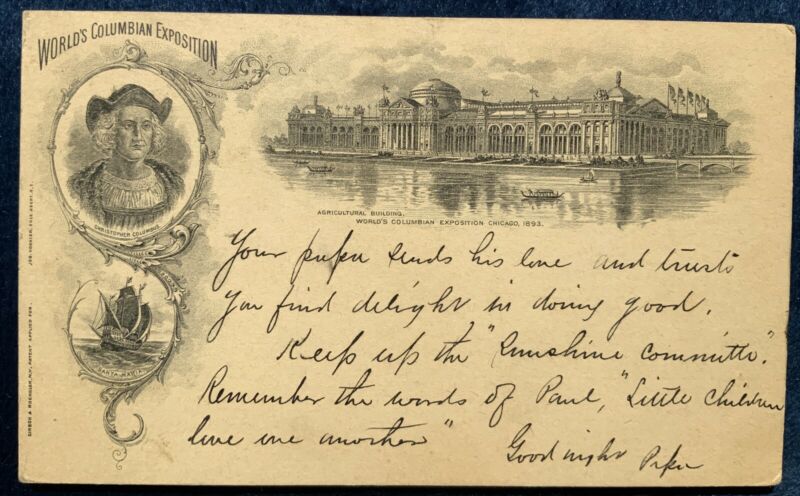 WORLD'S COLUMBIAN EXPOSITION
CHRISTOPHER COLUMBUS
SANTA-MARIA
AGRICULTURAL BUILDING.
WORLD'S COLUMBIAN EXPOSITION CHICAGO, 1893.
Your papa sends his love and trusts
you find delight in doing good.
Keep up the "Sunshine committe".
Remember the words of Paul, "Little children
love one another"
Good night Papa
SOLE AGENT, N.Y.
N.Y. PATENT APPLIED FOR.